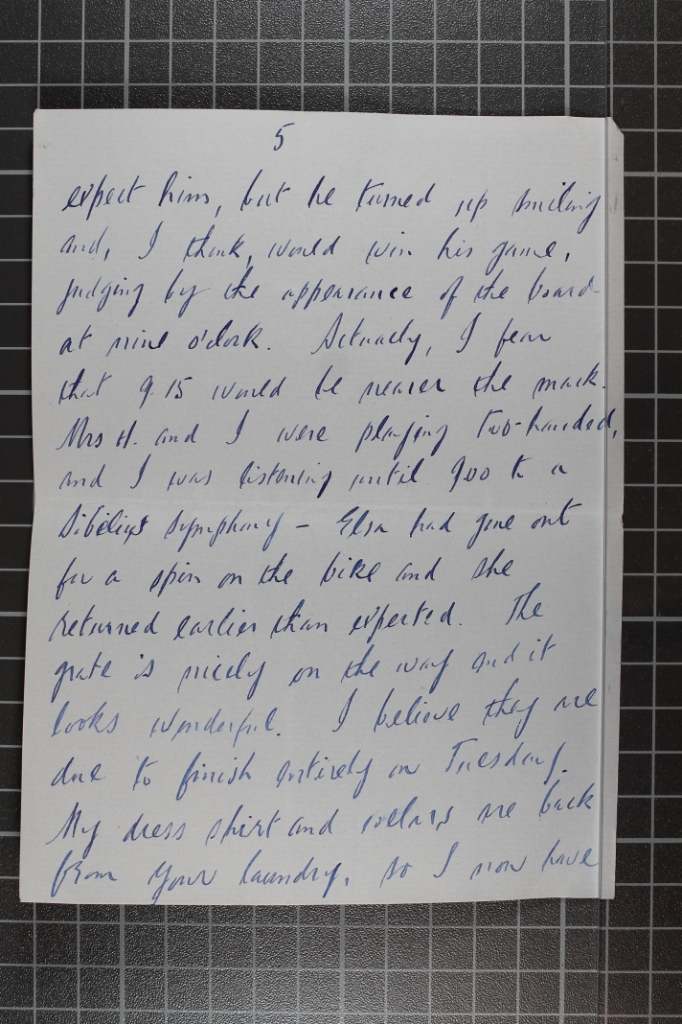 5
expect him, but he turned up smiling
and, I think, would win his game,
judging by the appearance of the board
at nine o'clock. Actually, I fear
that 9.15 would be nearer the mark.
Mrs H. and I were playing two-handed,
and I was listening until 900 to a
Sibelius Symphony – Elsa had gone out
for a spin on the bike and she
returned earlier than expected. The
grate is nicely on the way and it
looks wonderful. I believe they are
due to finish entirely on Tuesday.
My dress shirt and collars are back
from your laundry, so I now have